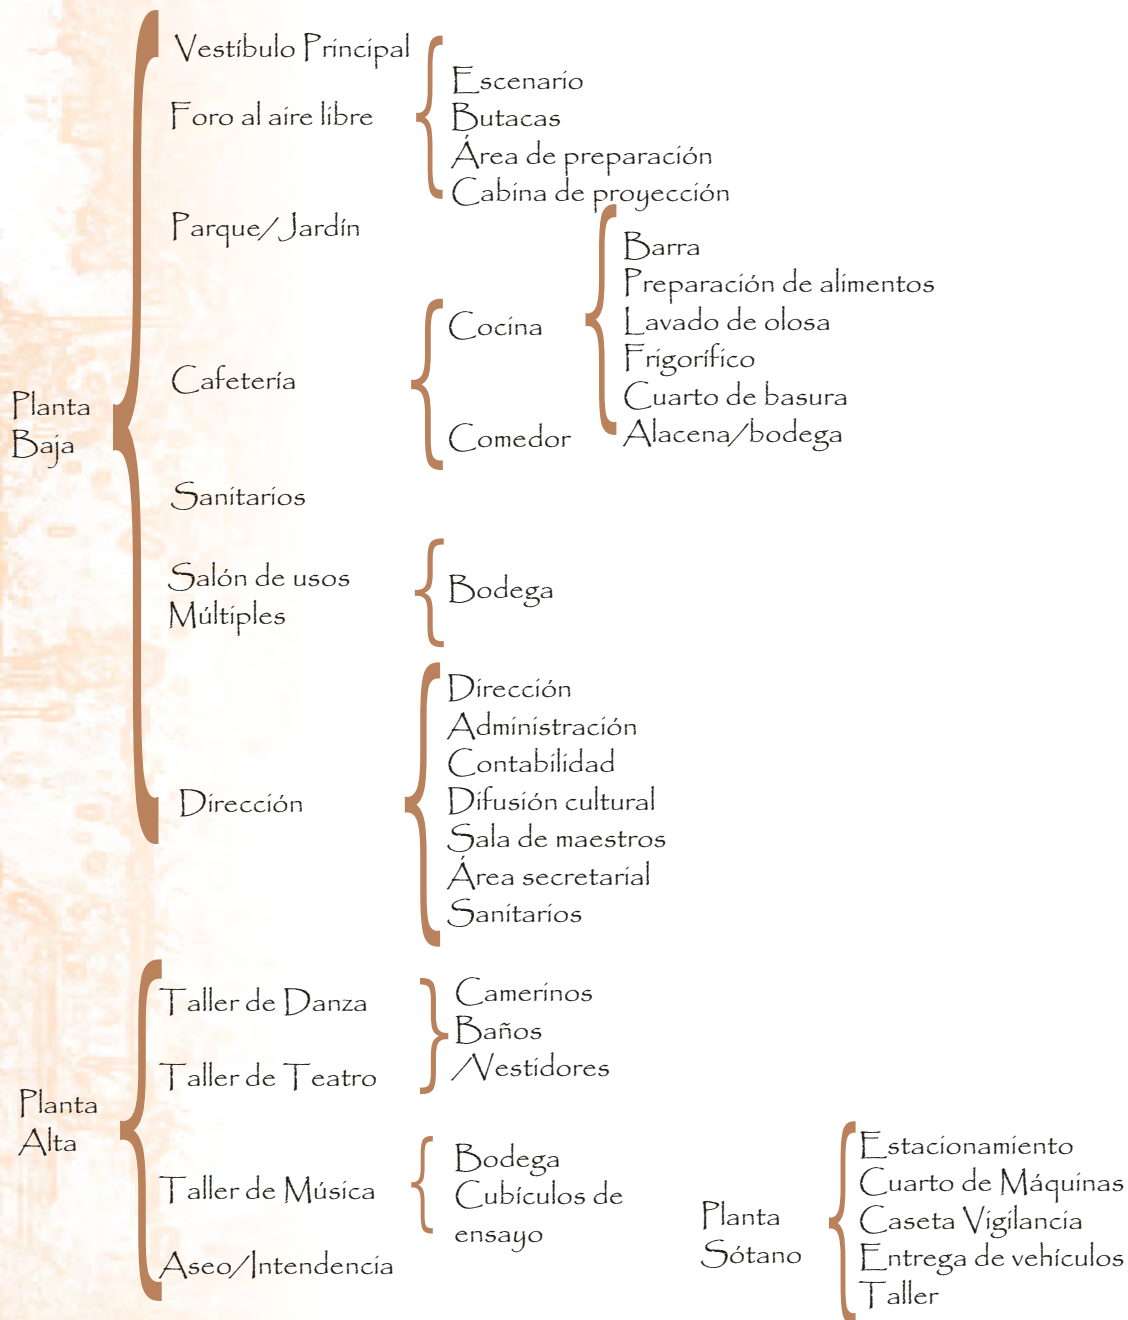 Planta
Baja
Vestíbulo Principal
Foro al aire libre
Escenario
Butacas
Área de preparación
Cabina de proyección
Parque/ Jardín
Cafetería
Cocina
Barra
Preparación de alimentos
Lavado de olosa
Frigorífico
Cuarto de basura
Alacena/bodega
Comedor
Sanitarios
Salón de usos
Múltiples
Bodega
Dirección
Dirección
Administración
Contabilidad
Difusión cultural
Sala de maestros
Área secretarial
Sanitarios
Planta
Alta
Taller de Danza
Taller de Teatro
Camerinos
Baños
/Vestidores
Taller de Música
Bodega
Cubículos de
ensayo
Aseo/Intendencia
Planta
Sótano
Estacionamiento
Cuarto de Máquinas
Caseta Vigilancia
Entrega de vehículos
Taller